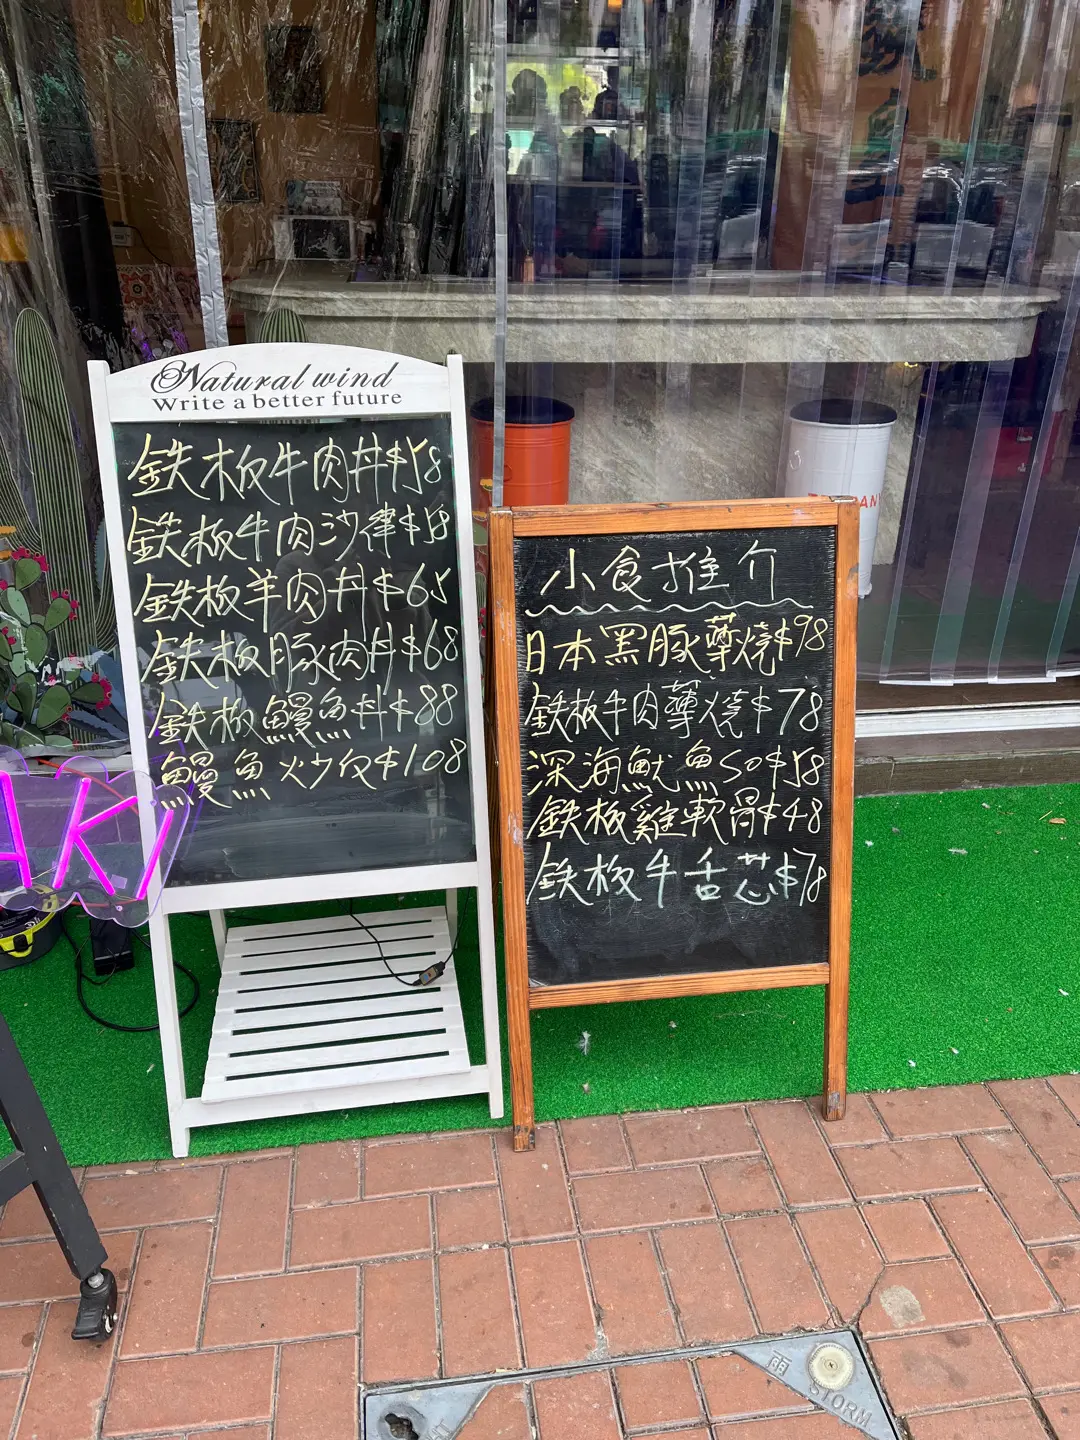 Natural wind
Write a better future
鉄板牛肉丼$58
鉄板牛肉沙律$58
鉄板羊肉丼$65
鉄板豚肉丼$68
鉄板鰻魚丼$88
鰻魚炒飯$108
小食推介
日本黑豚薑燒$98
鉄板牛肉薑燒$78
深海魷魚SO$58
鉄板雞軟骨$48
鉄板牛舌芯$78
AKI
雨
STORM